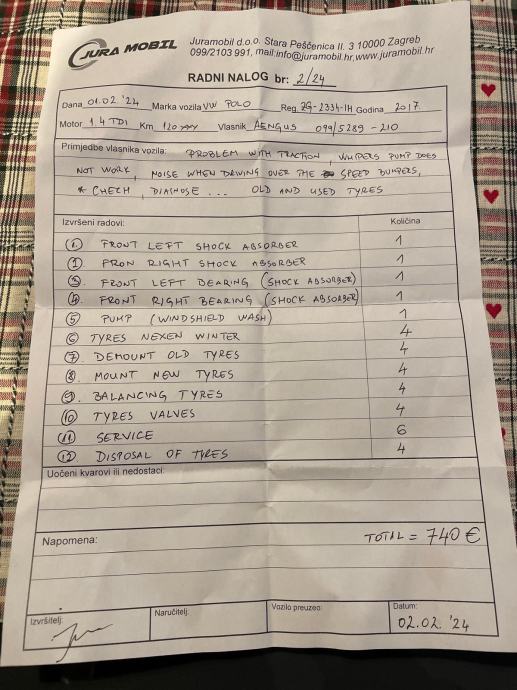 JURA MOBIL
Juramobil d.o.o. Stara Peščenica II. 3 10000 Zagreb
099/2103 991, mail:info@juramobil.hr,www.juramobil.hr
RADNI NALOG br: 2/24
Dana 01.02 '24 Marka vozila VW POLO Reg. ZG-2334-IH Godina 2017.
Motor 1.4 TDI Km 120 xxx Vlasnik AENGUS 099/5289-210
Primjedbe vlasnika vozila: PROBLEM WITH TRACTION, WHIPERS PUMP DOES
NOT WORK, NOISE WHEN DRIVING OVER THE SPEED BUMPERS,
* CHECH, DIAGNOSE... OLD AND USED TYRES
Izvršeni radovi: Količina
1. FRONT LEFT SHOCK ABSORBER 1
2 FRON RIGHT SHOCK ABSORBER 1
3. FRONT LEFT BEARING (SHOCK ABSORBER) 1
4. FRONT RIGHT BEARING (SHOCK ABSORBER) 1
5 PUMP (WINDSHIELD WASH) 1
6 TYRES NEXEN WINTER 4
7 DEMOUNT OLD TYRES 4
8. MOUNT NEW TYRES 4
9. BALANCING TYRES 4
10 TYRES VALVES 4
11 SERVICE 6
12 DISPOSAL OF TYRES 4
Uočeni kvarovi ili nedostaci:
Napomena: TOTAL = 740 €
Izvršitelj: Naručitelj: Vozilo preuzeo: Datum:
02.02. '24